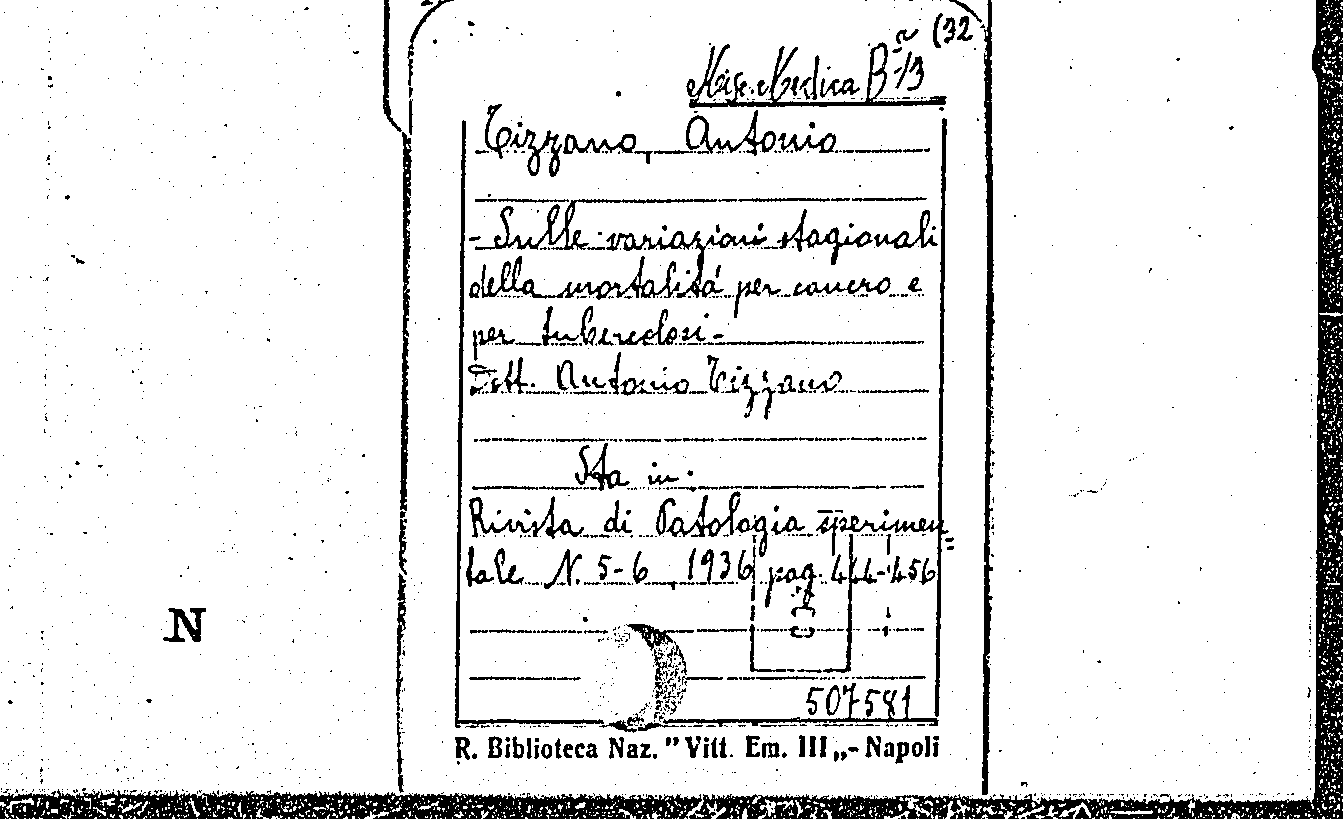 Misc. Medica B-13 (32
Tizzano, Antonio
- Sulle variazioni stagionali
della mortalitá per cancro e
per tubercolosi -
Dott. Antonio Tizzano
Sta in:
Rivista di Patologia sperimen=
tale N. 5-6, 1936 pag. 444-456
N
507581
R. Biblioteca Naz. "Vitt. Em. III„- Napoli